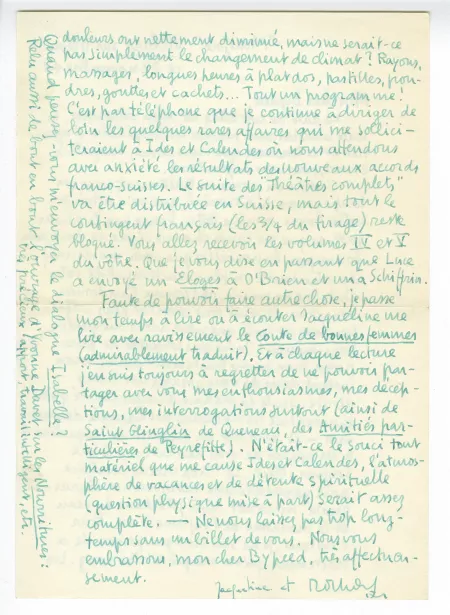 douleurs ont nettement diminué, mais ne serait-ce
pas simplement le changement de climat? Rayons,
massages, longues heures à plat dos, pastilles, pou-
dres, gouttes et cachets... Tout un programme!
C'est par téléphone que je continue à diriger de
loin les quelques rares affaires qui me sollici-
teraient à Ides et Calendes où nous attendons
avec anxiété les résultats des nouveaux accords
franco-suisses. La suite des "Théâtres complets"
va être distribuée en Suisse, mais tout le
contingent français (les 3/4 du tirage) reste
bloqué. Vous allez recevoir les volumes IV et V
du vôtre. Que je vous dise en passant que Luce
a envoyé un Eloges à O'Brien et un à Schiffrin.
Faute de pouvoir faire autre chose, je passe
mon temps à lire ou à écouter Jacqueline me
lire avec ravissement le Conte de bonnes femmes
(admirablement traduit). Et à chaque lecture
j'en suis toujours à regretter de ne pouvoir par-
tager avec vous mes enthousiasmes, mes décep-
tions, mes interrogations surtout (ainsi de
Saint Glinglin de Queneau, des Amitiés par-
ticulières de Peyrefitte). N'était-ce le souci tout
matériel que me cause Ides et Calendes, l'atmos-
phère de vacances et de détente spirituelle
(question physique mise à part) serait assez
complète. — Ne nous laissez pas trop long-
temps sans un billet de vous. Nous vous
embrassons, mon cher Bypeed, très affectueu-
sement.
Jacqueline et Richard
Quand pensez-vous m'envoyer le dialogue Isabelle?
Relu aussi de bout en bout l'ouvrage d'Yvonne Davet sur les Nourritures:
très précieux apport, travail intelligent, etc.